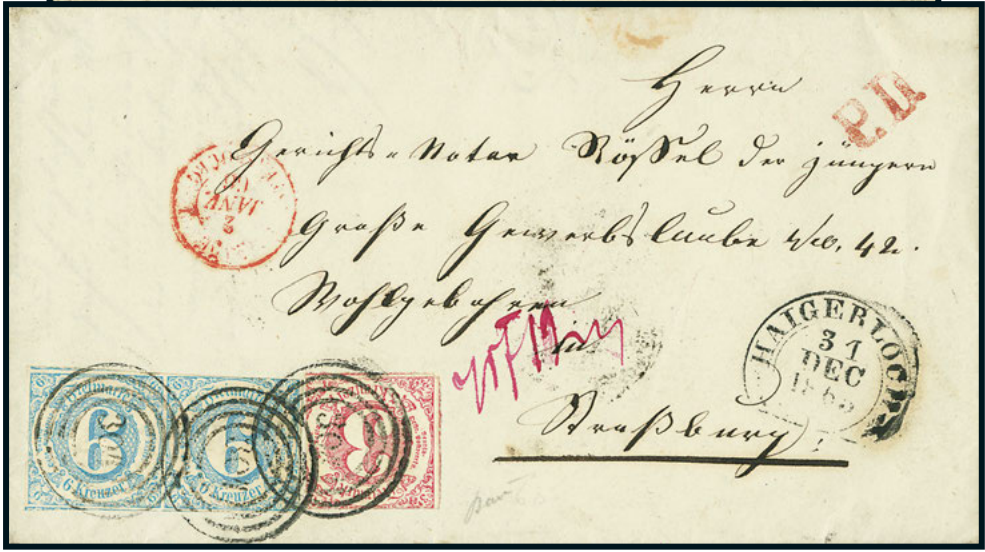 Herrn
P.D.
Gerichts=Notar Rössel der jüngern
2
JANV
Große Gewerbslaube No. 42.
Wohlgebohren
in
HAIGERLOCH
31
DEC
186
Straßburg
6
6 Kreuzer
6
6 Kreuzer
3